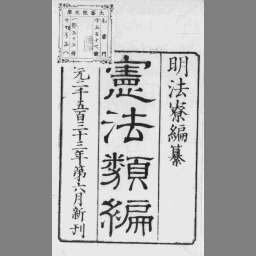 明法寮編纂
憲法類編
紀元二千五百三十三年第六月新刊